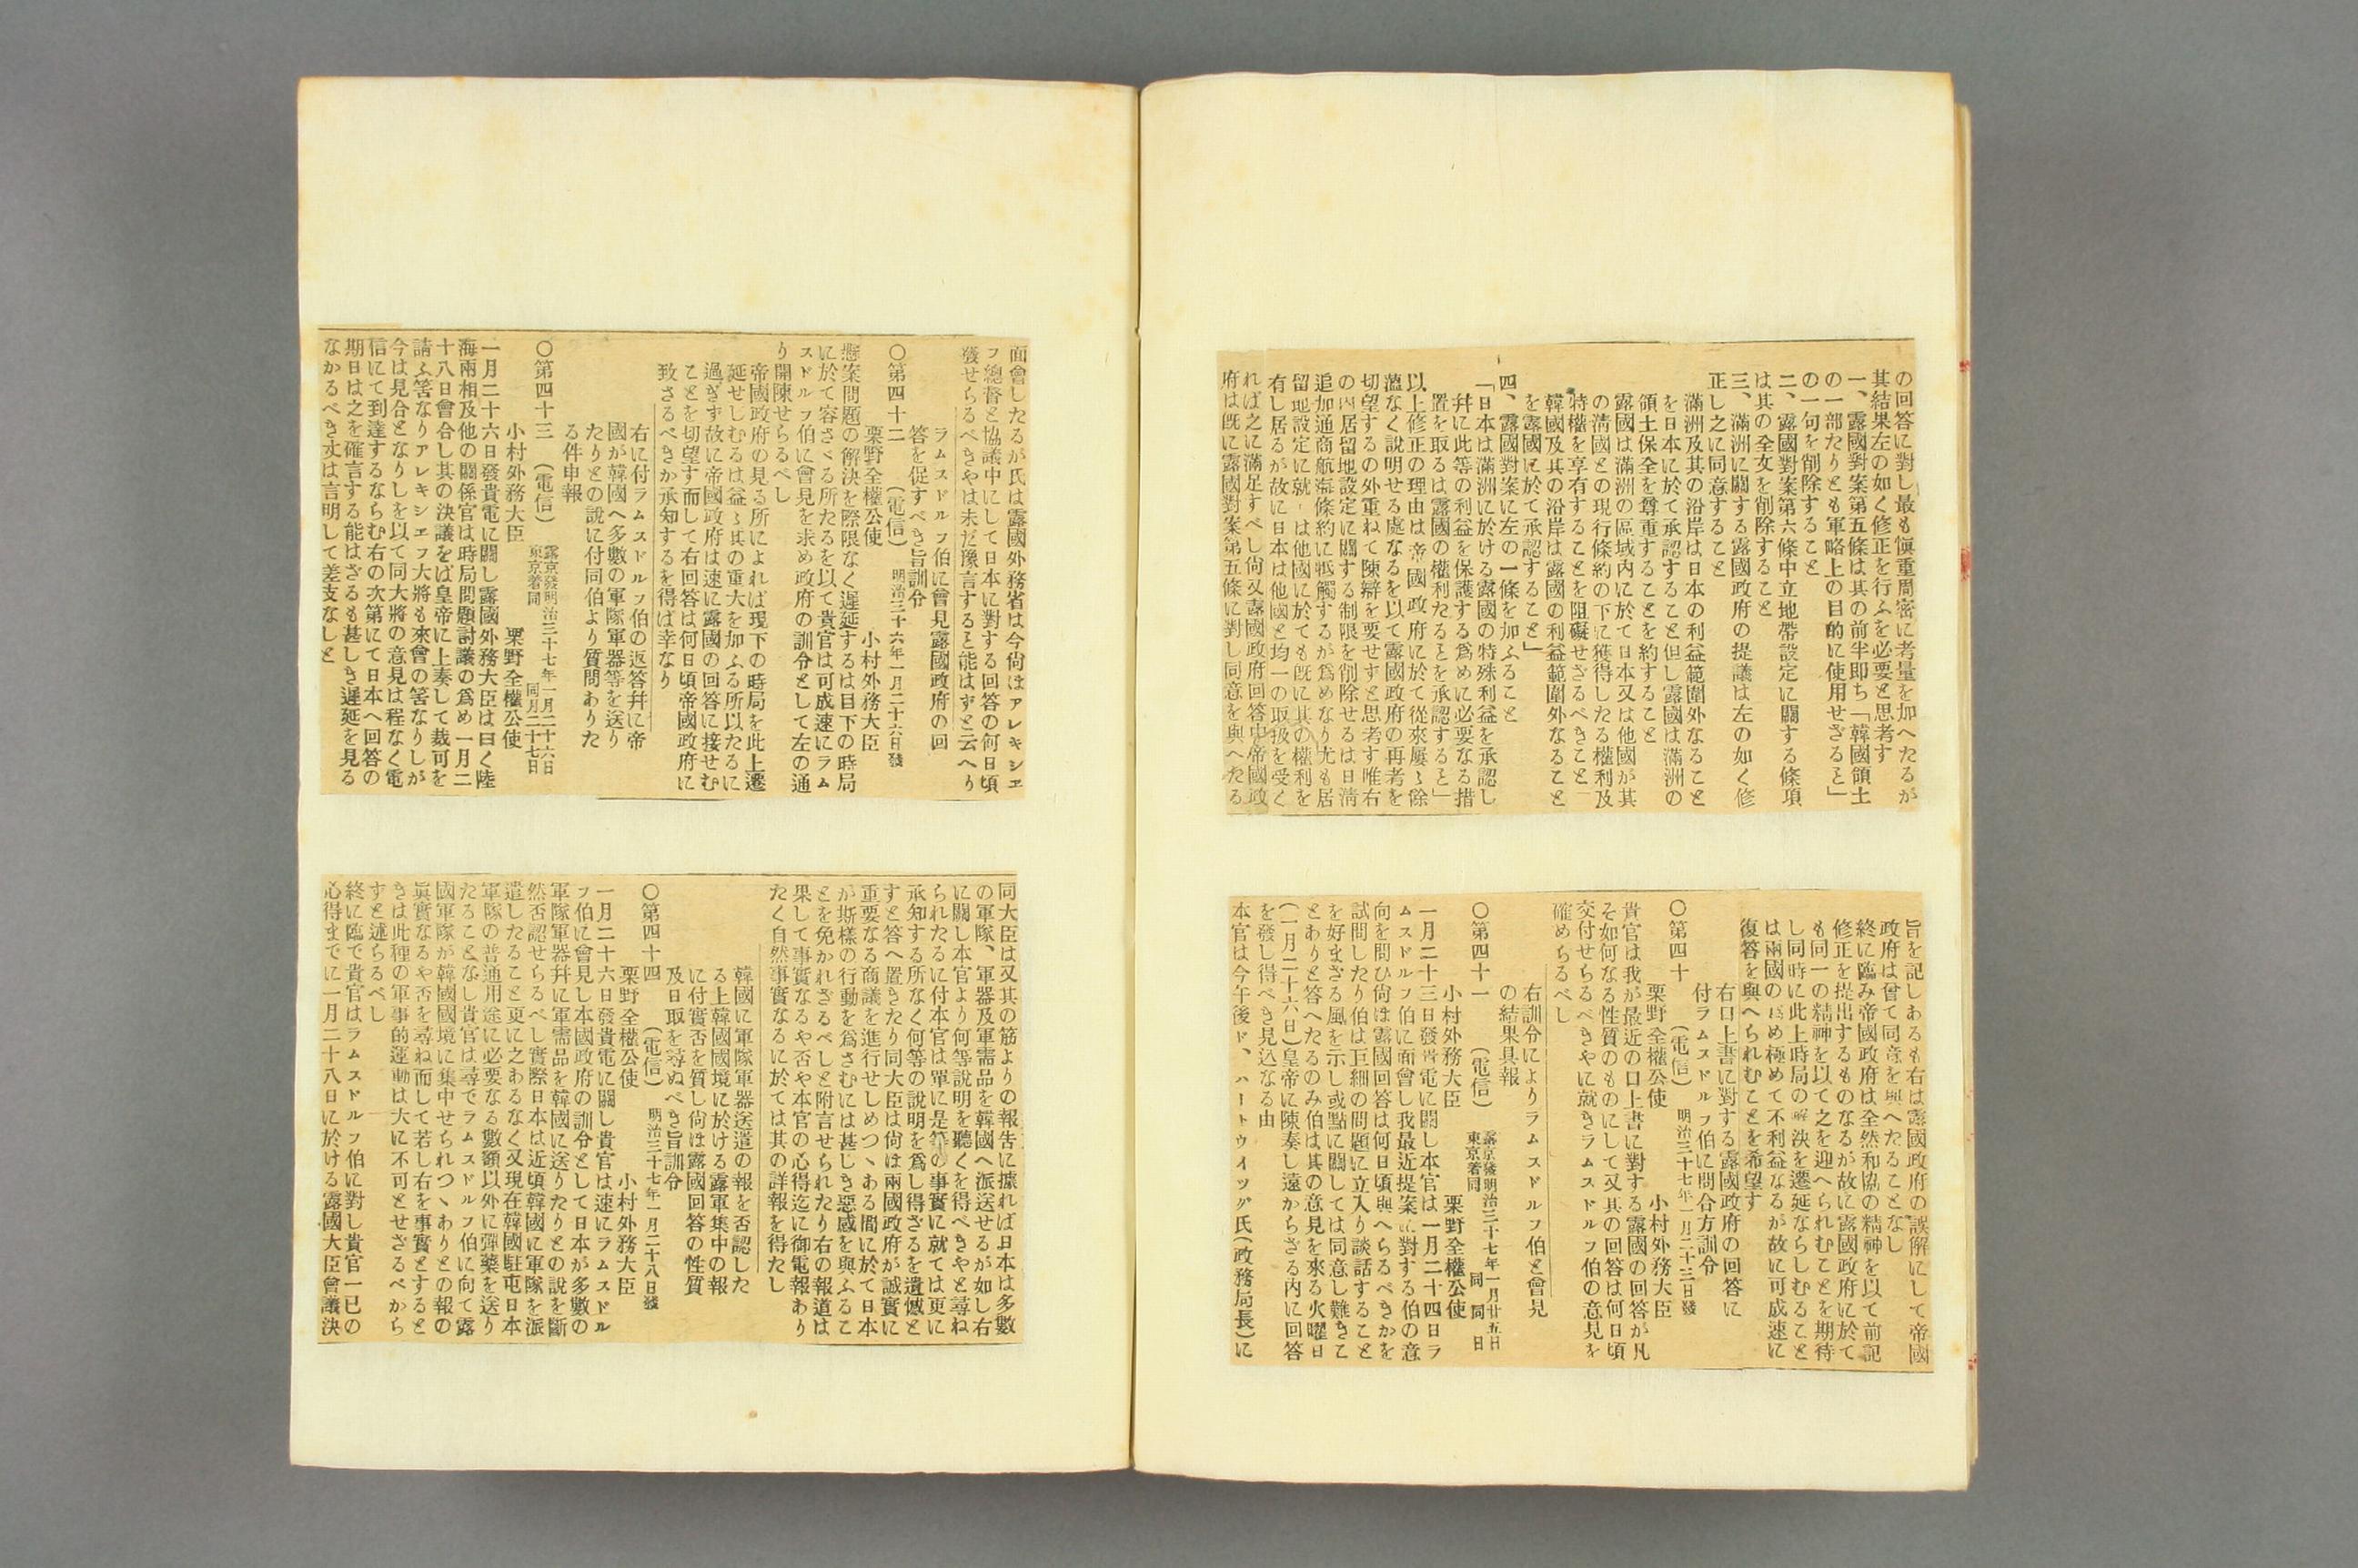 の回答に對し最も愼重周密に考量を加へたるが
其結果左の如く修正を行ふを必要と思考す
一、露國對案第五條は其の前半即ち「韓國領土
の一部たりとも軍略上の目的に使用せざると」
の一句を削除すること
二、露國對案第六條中立地帶設定に關する條項
は其の全文を削除すること
三、滿洲に關する露國政府の提議は左の如く修
正し之に同意すること
滿洲及其の沿岸は日本の利益範圍外なること
を日本に於て承認すること但し露國は滿洲の
領土保全を尊重することを約すること
露國は滿洲の區域内に於て日本又は他國が其
の淸國との現行條約の下に獲得したる權利及
特權を享有することを阻礙せざるべきこと
韓國及其の沿岸は露國の利益範圍外なること
を露國に於て承認すること」
四、露國對案に左の一條を加ふること
「日本は滿洲に於ける露國の特殊利益を承認し
幷に此等の利益を保護する爲めに必要なる措
置を取るは露國の權利たるとを承認すると」
以上修正の理由は帝國政府に於て從來屢々餘
薀なく說明せる處なるを以て露國政府の再考を
切望するの外重ねて陳辯を要せずと思考す唯右
の内居留地設定に關する制限を削除せるは日淸
追加通商航海條約に牴觸するが爲めなり尤も居
留地設定に就ては他國に於ても旣に其の權利を
有し居るが故に日本は他國と均一の取扱を受く
れば之に滿足すべし尙又露國政府回答中帝國政
府は旣に露國對案第五條に對し同意を與へたる
旨を記しあるも右は露國政府の誤解にして帝國
政府は曾て同意を與へたることなし
終に臨み帝國政府は全然和協の精神を以て前記
修正を提出するものなるが故に露國政府に於て
も同一の精神を以て之を迎へられむことを期待
し同時に此上時局の解決を遷延ならしむること
は兩國の爲め極めて不利益なるが故に可成速に
復答を與へられむことを希望す
右口上書に對する露國政府の回答に
付ラムスドルフ伯に問合方訓令
○第四十 (電信) 明治三十七年一月二十三日發
栗野全權公使 小村外務大臣
貴官は我が最近の口上書に對する露國の回答が凡
そ如何なる性質のものにして又其の回答は何日頃
交付せらるべきやに就きラムスドルフ伯の意見を
確めらるべし
右訓令によりラムスドルフ伯と會見
の結果具報
○第四十一 (電信) 露京發明治三十七年一月廿五日
東京着同 同 同 日
小村外務大臣 栗野全權公使
一月二十三日發貴電に關し本官は一月二十四日ラ
ムスドルフ伯に面會し我最近提案に對する伯の意
向を問ひ尙ほ露國回答は何日頃與へらるべきかを
試問したり伯は巨細の問題に立入り談話すること
を好まざる風を示し或點に關しては同意し難きこ
とありと答へたるのみ伯は其の意見を來る火曜日
(一月二十六日)皇帝に陳奏し遠からざる内に回答
を發し得べき見込なる由
本官は今午後ド、ハートウイッグ氏(政務局長)に
面會したるが氏は露國外務省は今尙ほアレキシエ
フ總督と協議中にして日本に對する回答の何日頃
發せらるべきやは未だ豫言すると能はずと云へり
ラムスドルフ伯に會見露國政府の回
答を促すべき旨訓令
○第四十二 (電信) 明治三十六年一月二十六日發
栗野全權公使 小村外務大臣
懸案問題の解決を際限なく遲延するは目下の時局
に於て容さゞる所たるを以て貴官は可成速にラム
スドルフ伯に會見を求め政府の訓令として左の通
り開陳せらるべし
帝國政府の見る所によれば現下の時局を此上遷
延せしむるは益々其の重大を加ふる所以たるに
過ぎず故に帝國政府は速に露國の回答に接せむ
ことを切望す而して右回答は何日頃帝國政府に
致さるべきか承知するを得ば幸なり
右に付ラムスドルフ伯の返答幷に帝
國が韓國へ多數の軍隊軍器等を送り
たりとの說に付同伯より質問ありた
る件申報
○第四十三 (電信) 露京發明治三十七年一月二十六日
東京着同 同月二十七日
小村外務大臣 栗野全權公使
一月二十六日發貴電に關し露國外務大臣は曰く陸
海兩相及他の關係官は時局問題討議の爲め一月二
十八日會合し其の決議をば皇帝に上奏して裁可を
請ふ筈なりアレキシエフ大將も來會の筈なりしが
今は見合となりしを以て同大將の意見は程なく電
信にて到達するならむ右の次第にて日本へ回答の
期日は之を確言する能はざるも甚しき遲延を見る
なかるべき丈は言明して差支なしと
同大臣は又其の筋よりの報告に據れば日本は多數
の軍隊、軍器及軍需品を韓國へ派送せるが如し右
に關し本官より何等說明を聽くを得べきやと尋ね
られたるに付本官は單に是等の事實に就ては更に
承知する所なく何等の說明を爲し得ざるを遺憾と
すと答へ置きたり同大臣は尙ほ兩國政府が誠實に
重要なる商議を進行せしめつゝある間に於て日本
が斯樣の行動を爲さむには甚じき惡感を與ふるこ
とを免かれざるべしと附言せられたり右の報道は
果して事實なるや否や本官の心得迄に御電報あり
たく自然事實なるに於ては其の詳報を得たし
韓國に軍隊軍器送遣の報を否認した
る上韓國國境に於ける露軍集中の報
に付實否を質し尙ほ露國回答の性質
及日取を尋ぬべき旨訓令
○第四十四 (電信) 明治三十七年一月二十八日發
栗野全權公使 小村外務大臣
一月二十六日發貴電に關し貴官は速にラムスドル
フ伯に會見し本國政府の訓令として日本が多數の
軍隊軍器幷に軍需品を韓國に送りたりとの說を斷
然否認せらるべし實際日本は近頃韓國に軍隊を派
遣したること更に之あるなく又現在韓國駐屯日本
軍隊の普通用途に必要なる數額以外に彈藥を送り
たることなし貴官は尋でラムスドルフ伯に向て露
國軍隊が韓國國境に集中せられつゝありとの報の
眞實なるや否を尋ね而して若し右を事實とすると
きは此種の軍事的運動は大に不可とせざるべから
すと述らるべし
終に臨で貴官はラムスドルフ伯に對し貴官一已の
心得までに一月二十八日に於ける露國大臣會議決